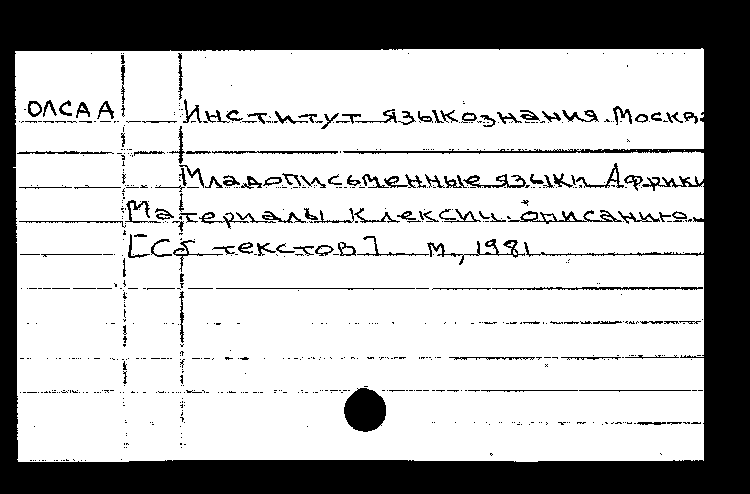 ОЛСАА Институт языкознания. Москва
Младописьменные языки Африки
Материалы к лексич. описанию.
[Сб текстов] М., 1981.